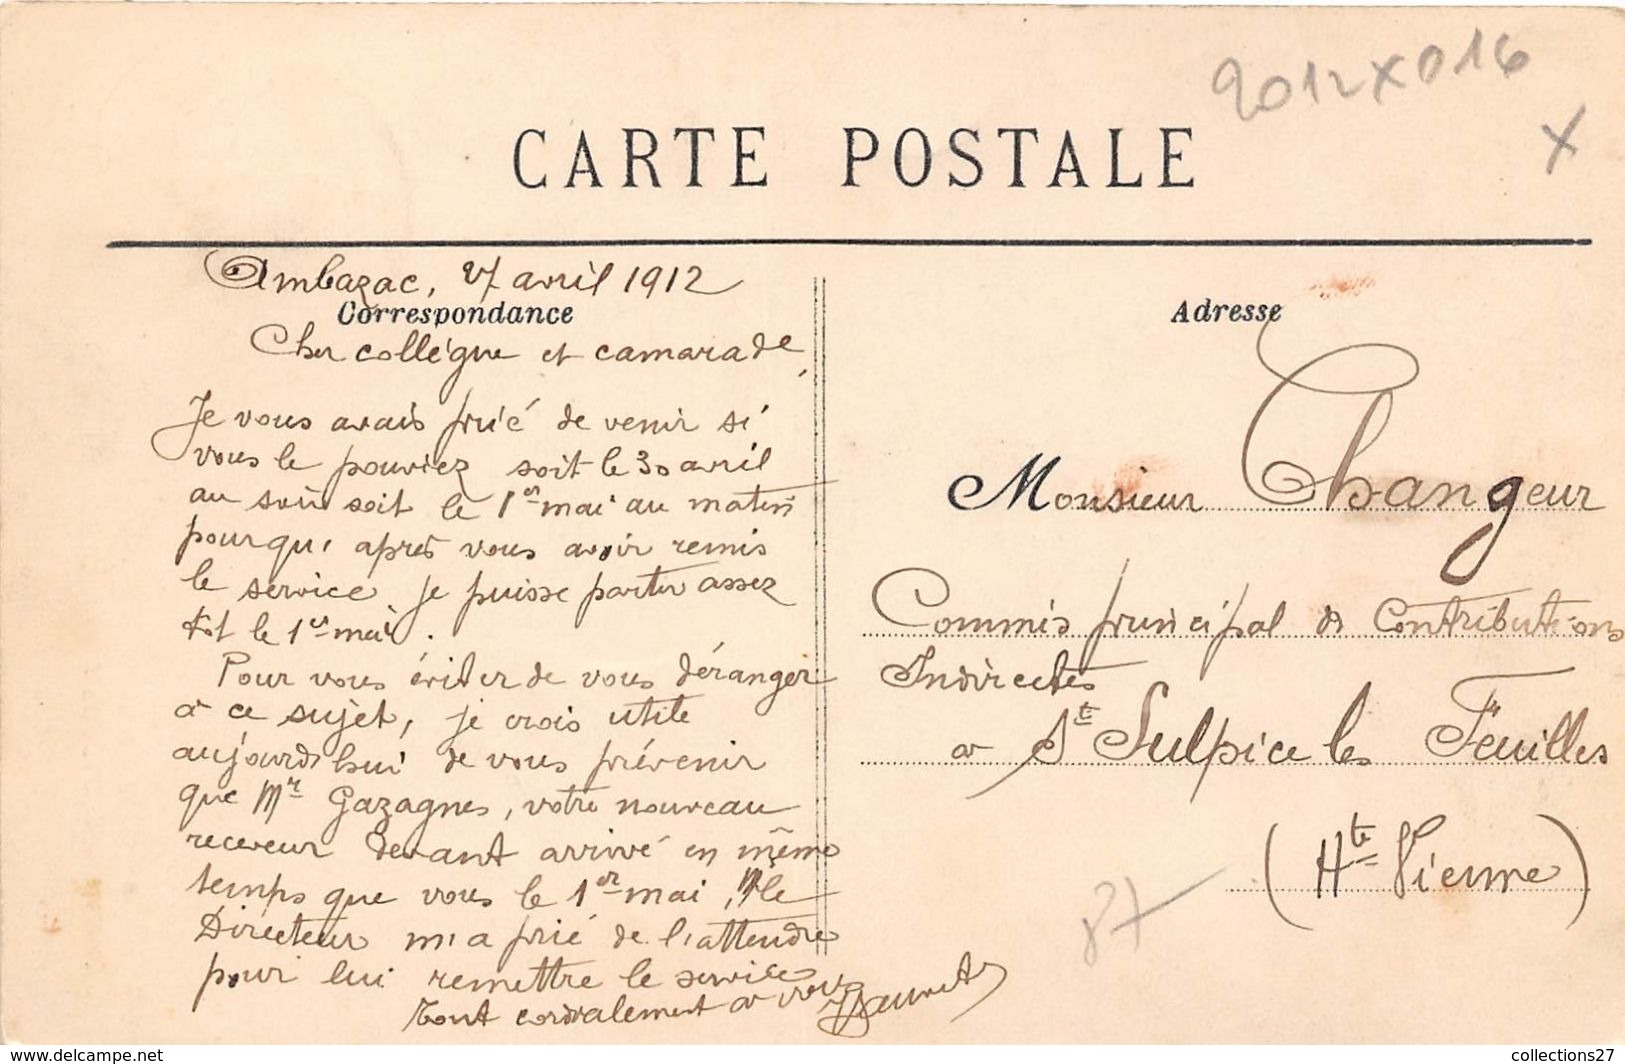 2012X016
X
CARTE POSTALE
Ambazac, 27 avril 1912
Correspondance
Cher collègue et camarade,
Je vous avais prié de venir si
vous le pouviez soit le 30 avril
au soir soit le 1er mai au matin
pourqu' après vous avoir remis
le service je puisse partir assez
tôt le 1er mai.
Pour vous éviter de vous déranger
à ce sujet, je crois utile
aujourd'hui de vous prévenir
que Mr Gazagnes, votre nouveau
receveur devant arrivé en même
temps que vous le 1er mai, M le
Directeur m'a prié de l'attendre
pour lui remettre le service
Tout cordialement à vous
Adresse
Monsieur Changeur
Commis principal de Contributions
Indirectes
a St Sulpice les Feuilles
(Hte Vienne)
87
collections27
www.delcampe.net